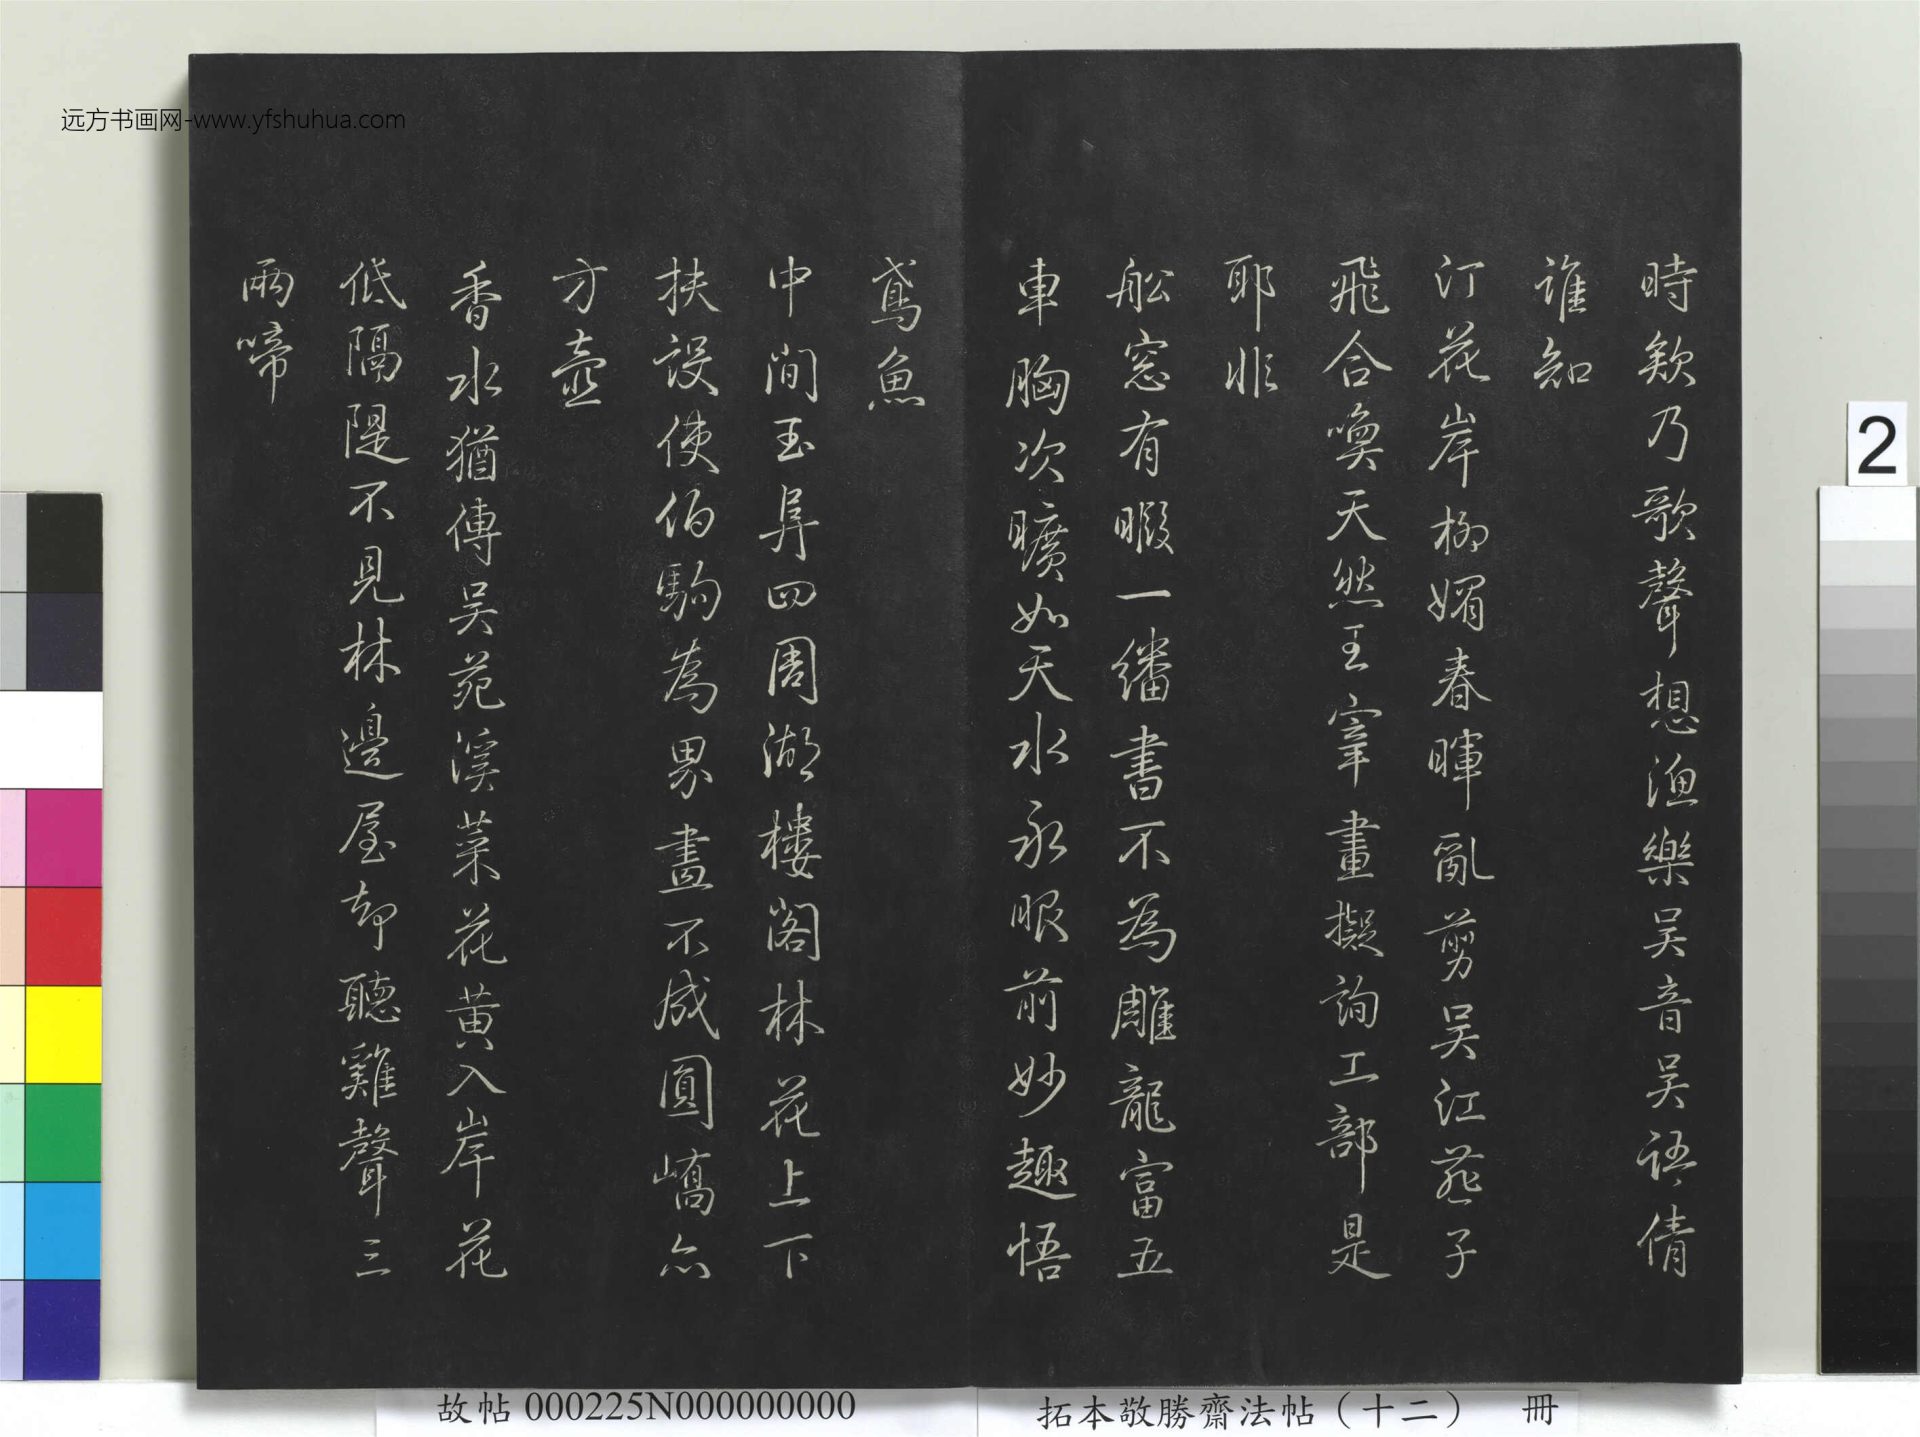 远方书画网-www.yfshuhua.com
時欸乃歌聲想漁樂吴音吴語倩
誰知
汀花岸柳媚春暉亂剪吴江燕子
飛合喚天然王宰畫擬詢工部是
耶非
舩窓有暇一繙書不為雕龍富五
車胸次曠如天水永眼前妙趣悟
鳶魚
中間玉阜四周湖樓閣林花上下
扶設使伯駒為界畫不成圓嶠亦
方壺
香水猶傳吴苑溪菜花黄入岸花
低隔隄不見林邊屋却聽雞聲三
兩啼
2
故帖 000225N000000000
拓本敬勝齋法帖（十二） 冊